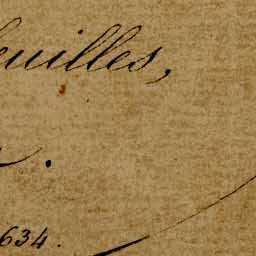 euilles,
634.